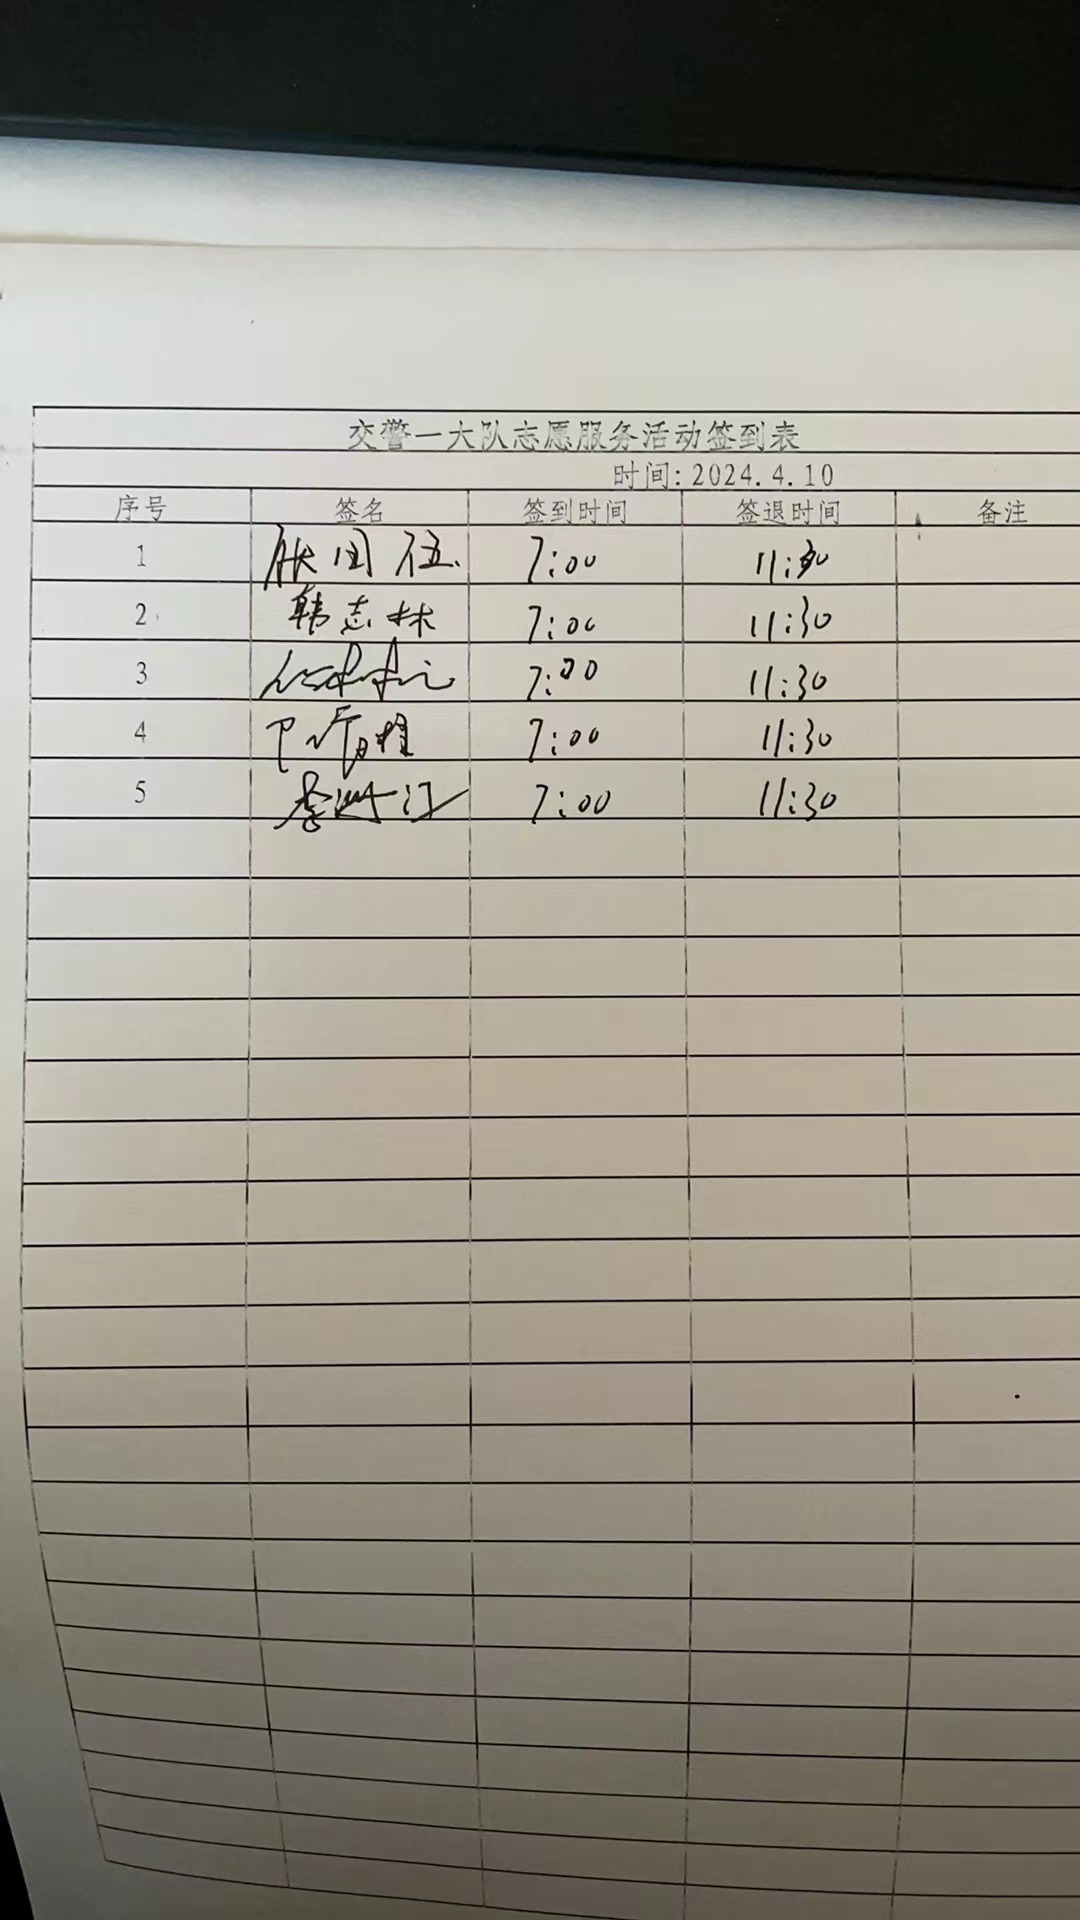 交警一大队志愿服务活动签到表
时间:2024.4.10
序号 签名 签到时间 签退时间 备注
1 张国伍 7:00 11:30
2 韩志林 7:00 11:30
3 7:00 11:30
4 7:00 11:30
5 李洪江 7:00 11:30